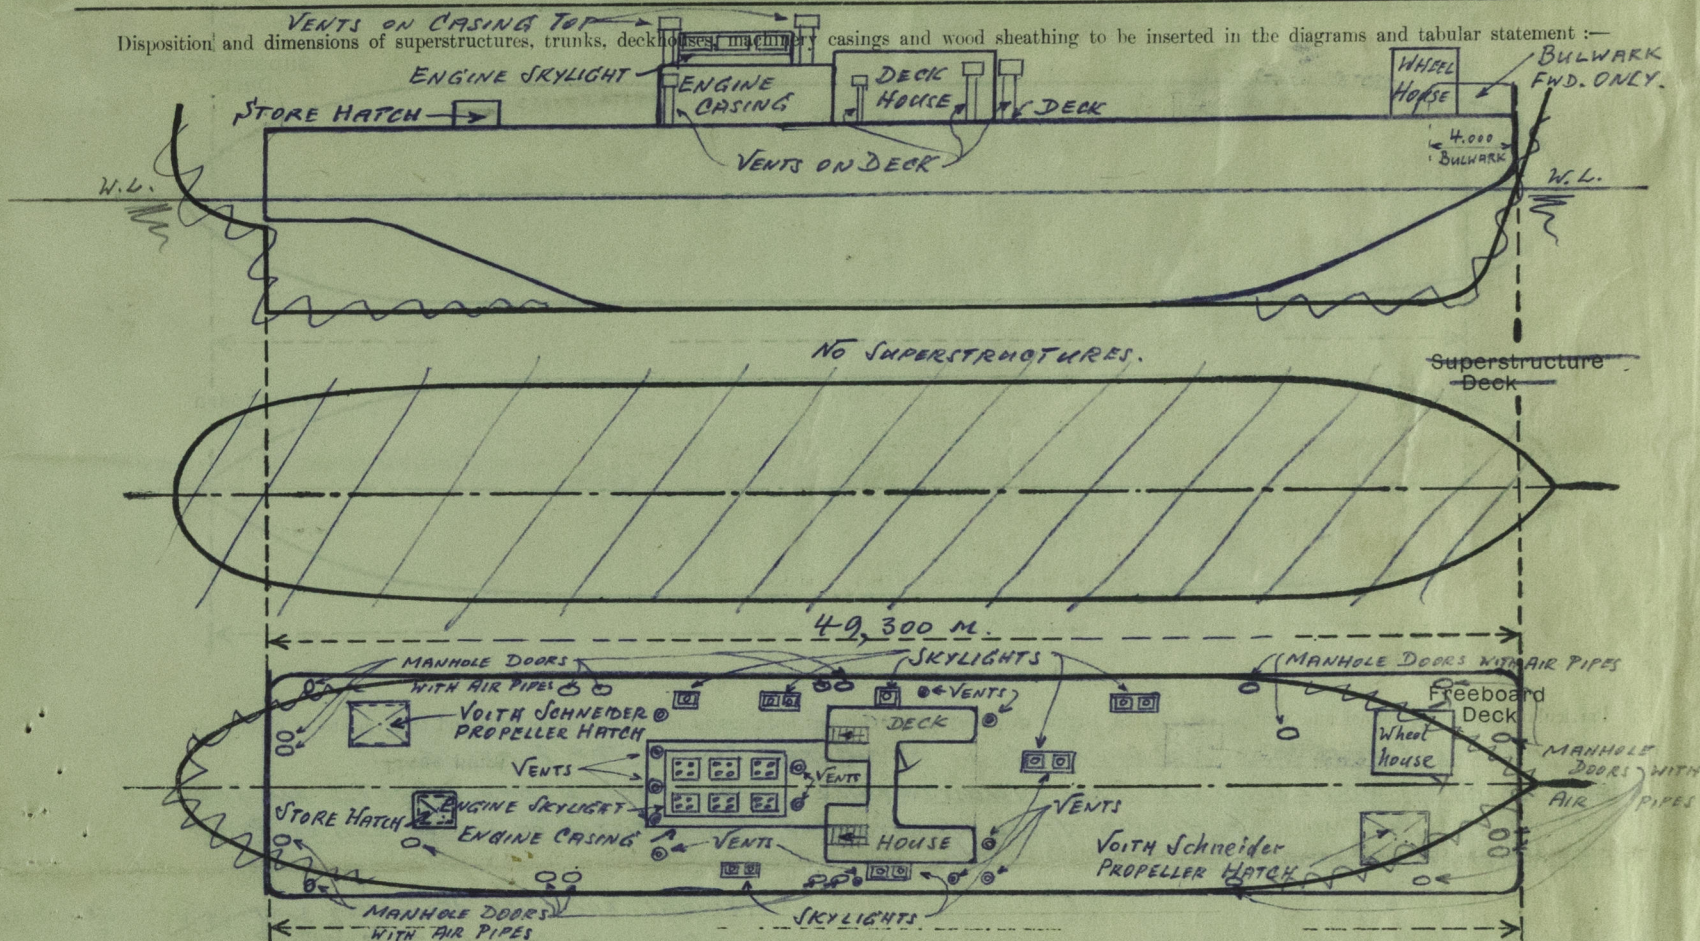 VENTS ON CASING TOP
Disposition and dimensions of superstructures, trunks, deckhouses, machinery casings and wood sheathing to be inserted in the diagrams and tabular statement :—
ENGINE SKYLIGHT
ENGINE
CASING
DECK
HOUSE
DECK
WHEEL
HOUSE
BULWARK
FWD. ONLY.
STORE HATCH
VENTS ON DECK
4.000
BULWARK
W.L.
W.L.
NO SUPERSTRUCTURES.
Superstructure
Deck
49,300 M.
MANHOLE DOORS
WITH AIR PIPES
SKYLIGHTS
MANHOLE DOORS WITH AIR PIPES
VENTS
Freeboard
Deck
VOITH SCHNEIDER
PROPELLER HATCH
DECK
Wheel
house
VENTS
VENTS
MANHOLE
DOORS WITH
AIR PIPES
STORE HATCH
ENGINE SKYLIGHT
ENGINE CASING
VENTS
VENTS
HOUSE
VOITH Schneider
PROPELLER HATCH
MANHOLE DOORS
WITH AIR PIPES
SKYLIGHTS